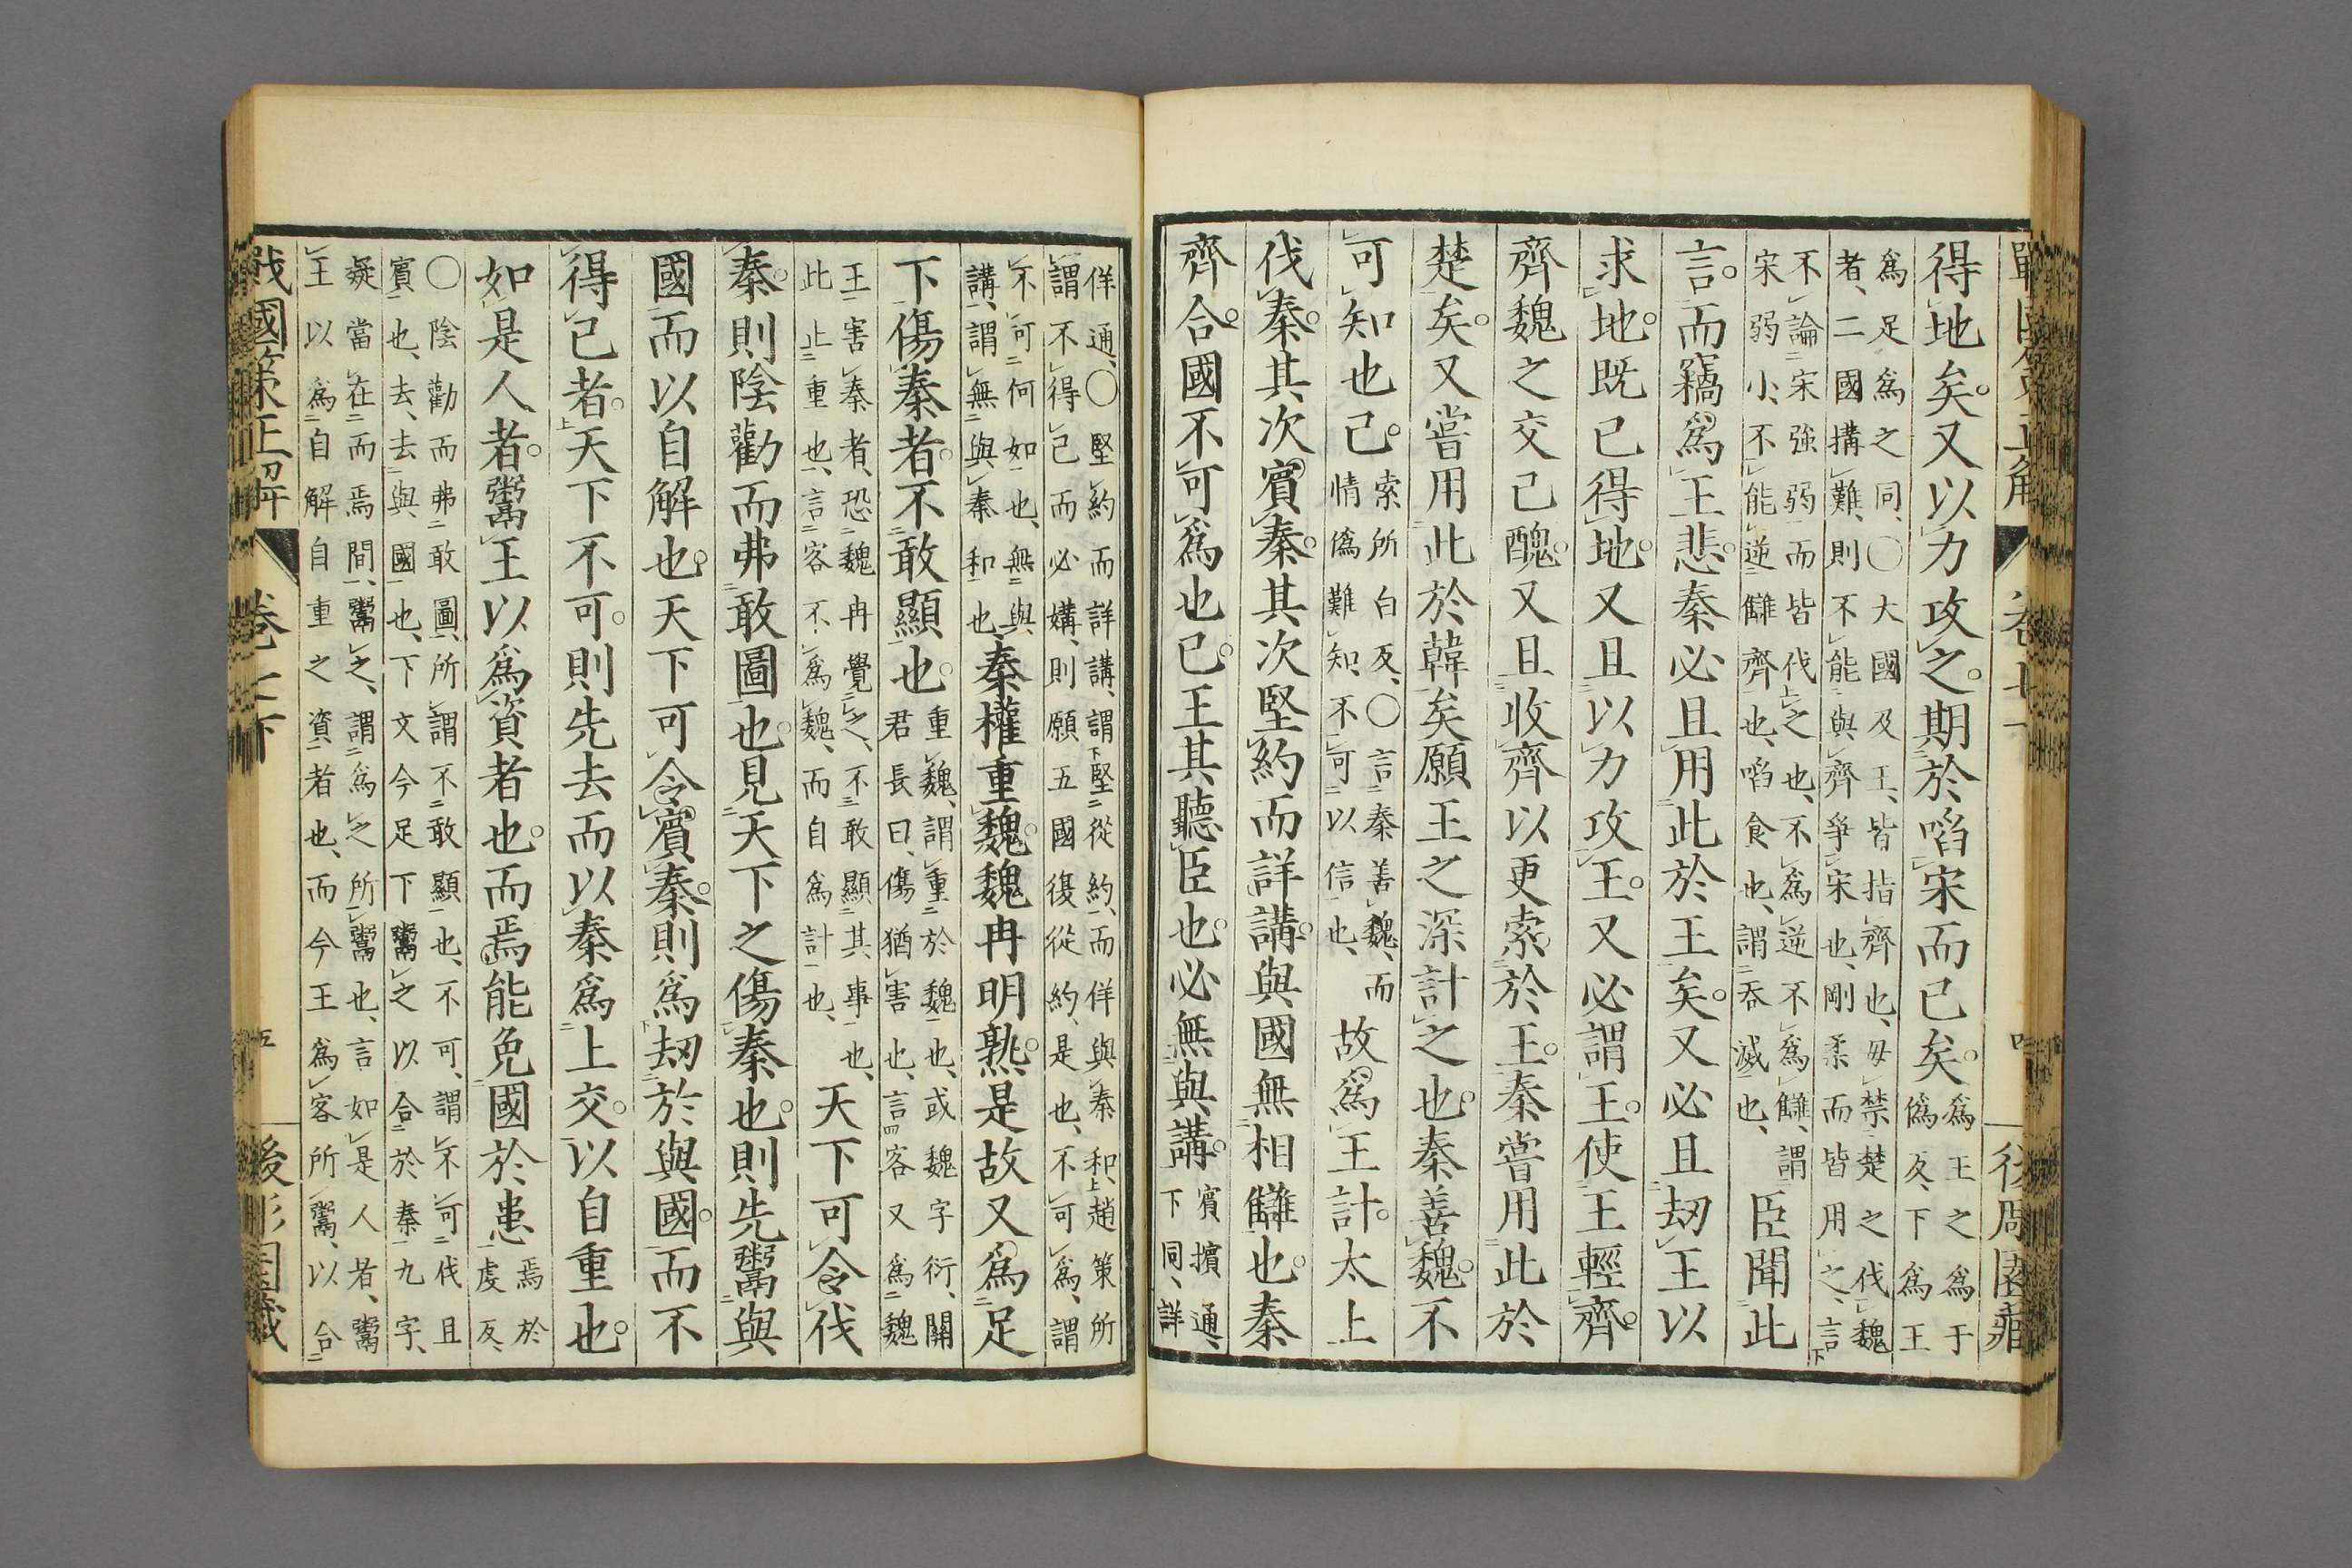 戰國策正解 卷七下 四 後凋園藏
得地矣又以力攻之期於啗宋而已矣爲王之爲于
僞反下爲王
爲足爲之同○大國及王皆指齊也毋禁楚之伐魏
者二國搆難則不能與齊爭宋也剛柔而皆用之言
不論宋強弱而皆伐之也不爲逆不爲讎謂
宋弱小不能逆讎齊也啗食也謂吞滅也臣聞此
言而竊爲王悲秦必且用此於王矣又必且劫王以
求地既已得地又且以力攻王又必謂王使王輕齊
齊魏之交已醜又且收齊以更索於王秦嘗用此於
楚矣又嘗用此於韓矣願王之深計之也秦善魏不
可知也已索所白反○言秦善魏而
情僞難知不可以信也故爲王計太上
伐秦其次賓秦其次堅約而詳講與國無相讎也秦
齊合國不可爲也已王其聽臣也必無與講賓擯通
下同詳
佯通○堅約而詳講謂堅從約而佯與秦和趙策所
謂不得已而必媾則願五國復從約是也不可爲謂
不可何如也無與
講謂無與秦和也秦權重魏魏冉明熟是故又爲足
下傷秦者不敢顯也重魏謂重於魏也或魏字衍關
君長曰傷猶害也言客又爲魏
王害秦者恐魏冉覺之不敢顯其事也
此止重也言客不爲魏而自爲計也天下可令伐
秦則陰勸而弗敢圖也見天下之傷秦也則先鬻與
國而以自解也天下可令賓秦則爲劫於與國而不
得已者天下不可則先去而以秦爲上交以自重也
如是人者鬻王以爲資者也而焉能免國於患焉於
虔反
○陰勸而弗敢圖所謂不敢顯也不可謂不可伐且
賓也去去與國也下文今足下鬻之以合於秦九字
疑當在而焉間鬻之謂爲之所鬻也言如是人者鬻
王以爲自解自重之資者也而今王爲客所鬻以合
戰國策正解 卷七下 五 後凋園藏